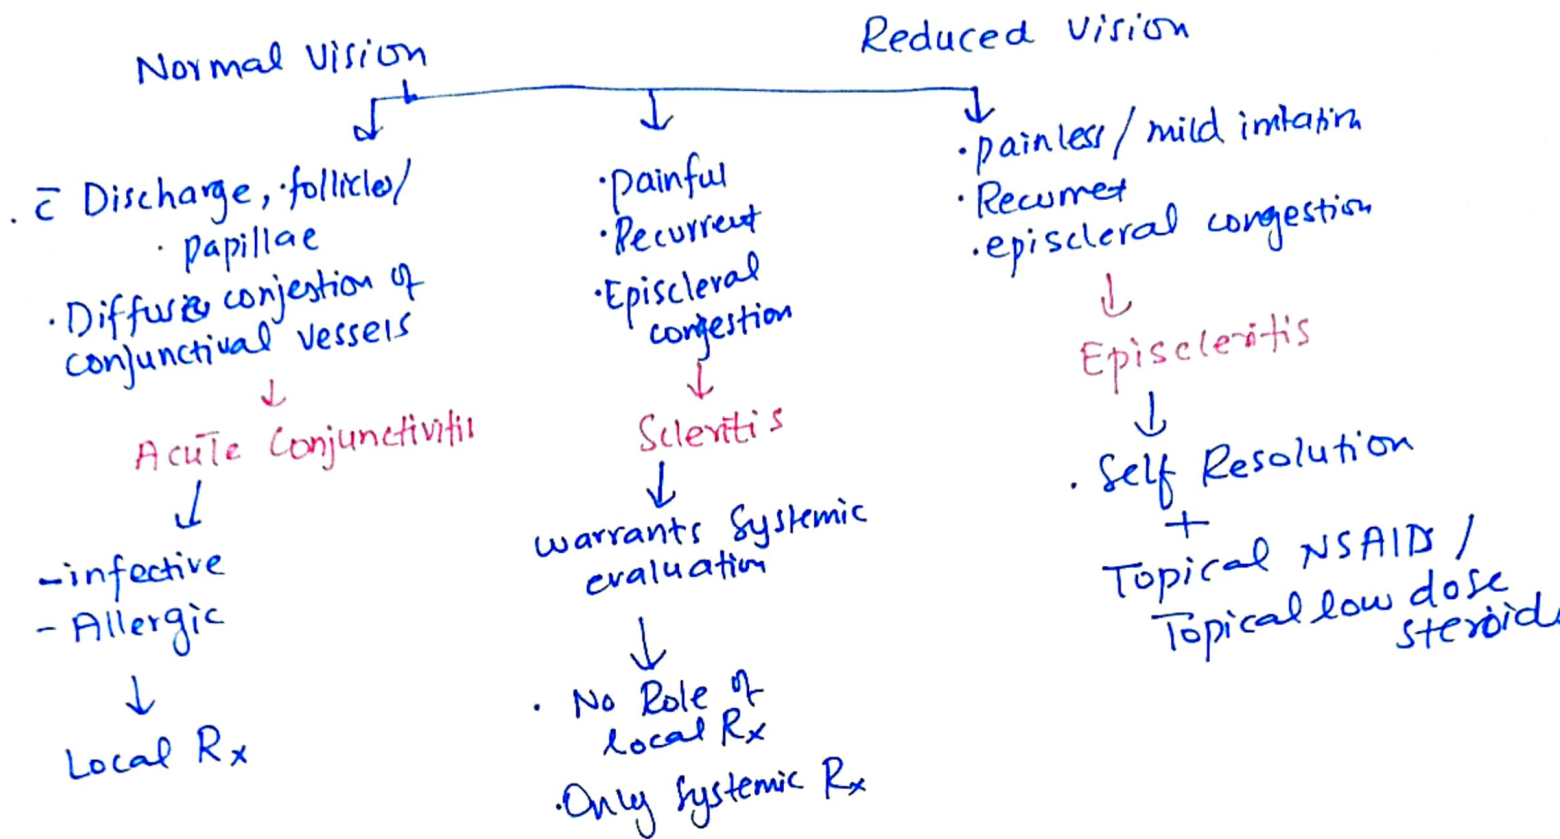 Normal Vision
Reduced Vision
. c̄ Discharge, .follicles/
. papillae
. Diffuse conjestion of
conjunctival vessels
Acute Conjunctivitis
-infective
- Allergic
Local Rx
. painful
. Recurrent
. Episcleral
congestion
Scleritis
warrants Systemic
evaluation
. No Role of
local Rx
. Only Systemic Rx
. painless/mild irritation
. Recurret
. episcleral congestion
Episcleritis
. Self Resolution
+
Topical NSAIDs /
Topical low dose
steroids